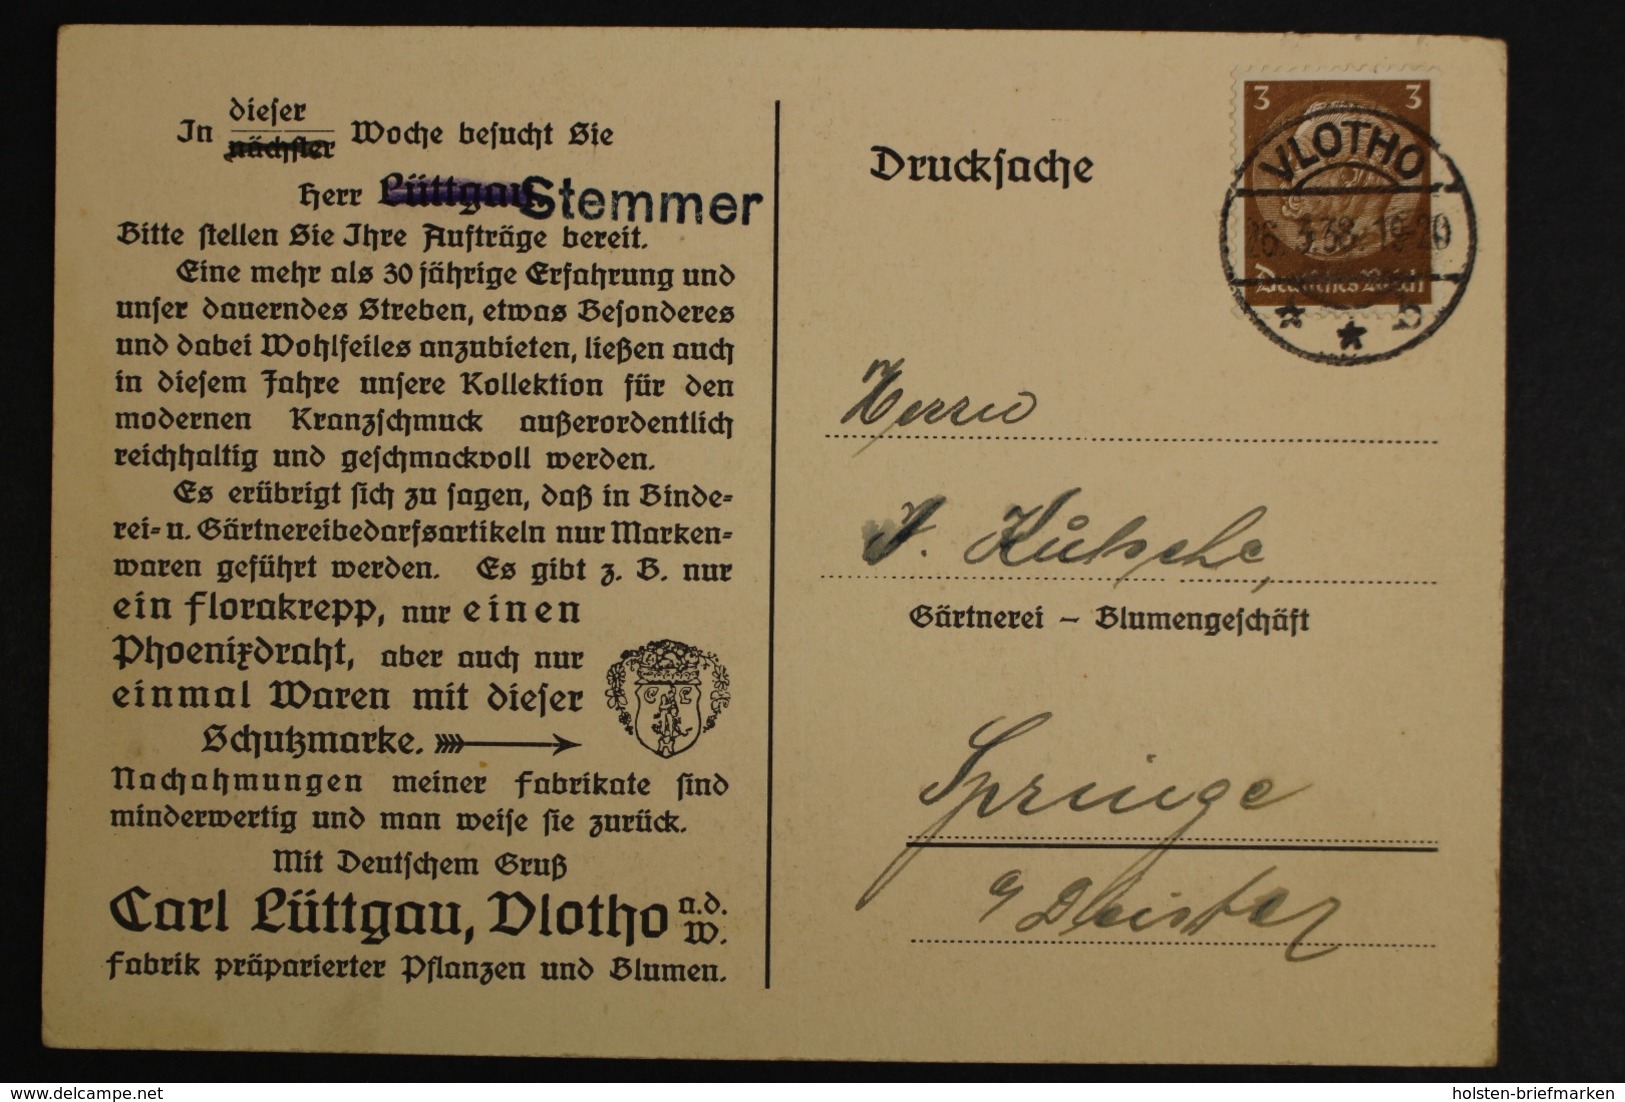 In dieser Woche besucht Sie
nächster
Herr Lüttgau Stemmer
Bitte stellen Sie Ihre Aufträge bereit.
Eine mehr als 30 jährige Erfahrung und
unser dauerndes Streben, etwas Besonderes
und dabei Wohlfeiles anzubieten, ließen auch
in diesem Jahre unsere Kollektion für den
modernen Kranzschmuck außerordentlich
reichhaltig und geschmackvoll werden.
Es erübrigt sich zu sagen, daß in Binde-
rei- u. Gärtnereibedarfsartikeln nur Marken-
waren geführt werden. Es gibt z. B. nur
ein Florakrepp, nur einen
Phoenixdraht, aber auch nur
einmal Waren mit dieser
Schutzmarke.
Nachahmungen meiner Fabrikate sind
minderwertig und man weise sie zurück.
Mit Deutschem Gruß
Carl Lüttgau, Vlotho a.d.
W.
Fabrik präparierter Pflanzen und Blumen.
Drucksache
3 3
VLOTHO
26.3.38.19-20
Deutsches Reich
Herrn
Gärtnerei – Blumengeschäft
Springe
a/Deister
www.delcampe.net
holsten-briefmarken